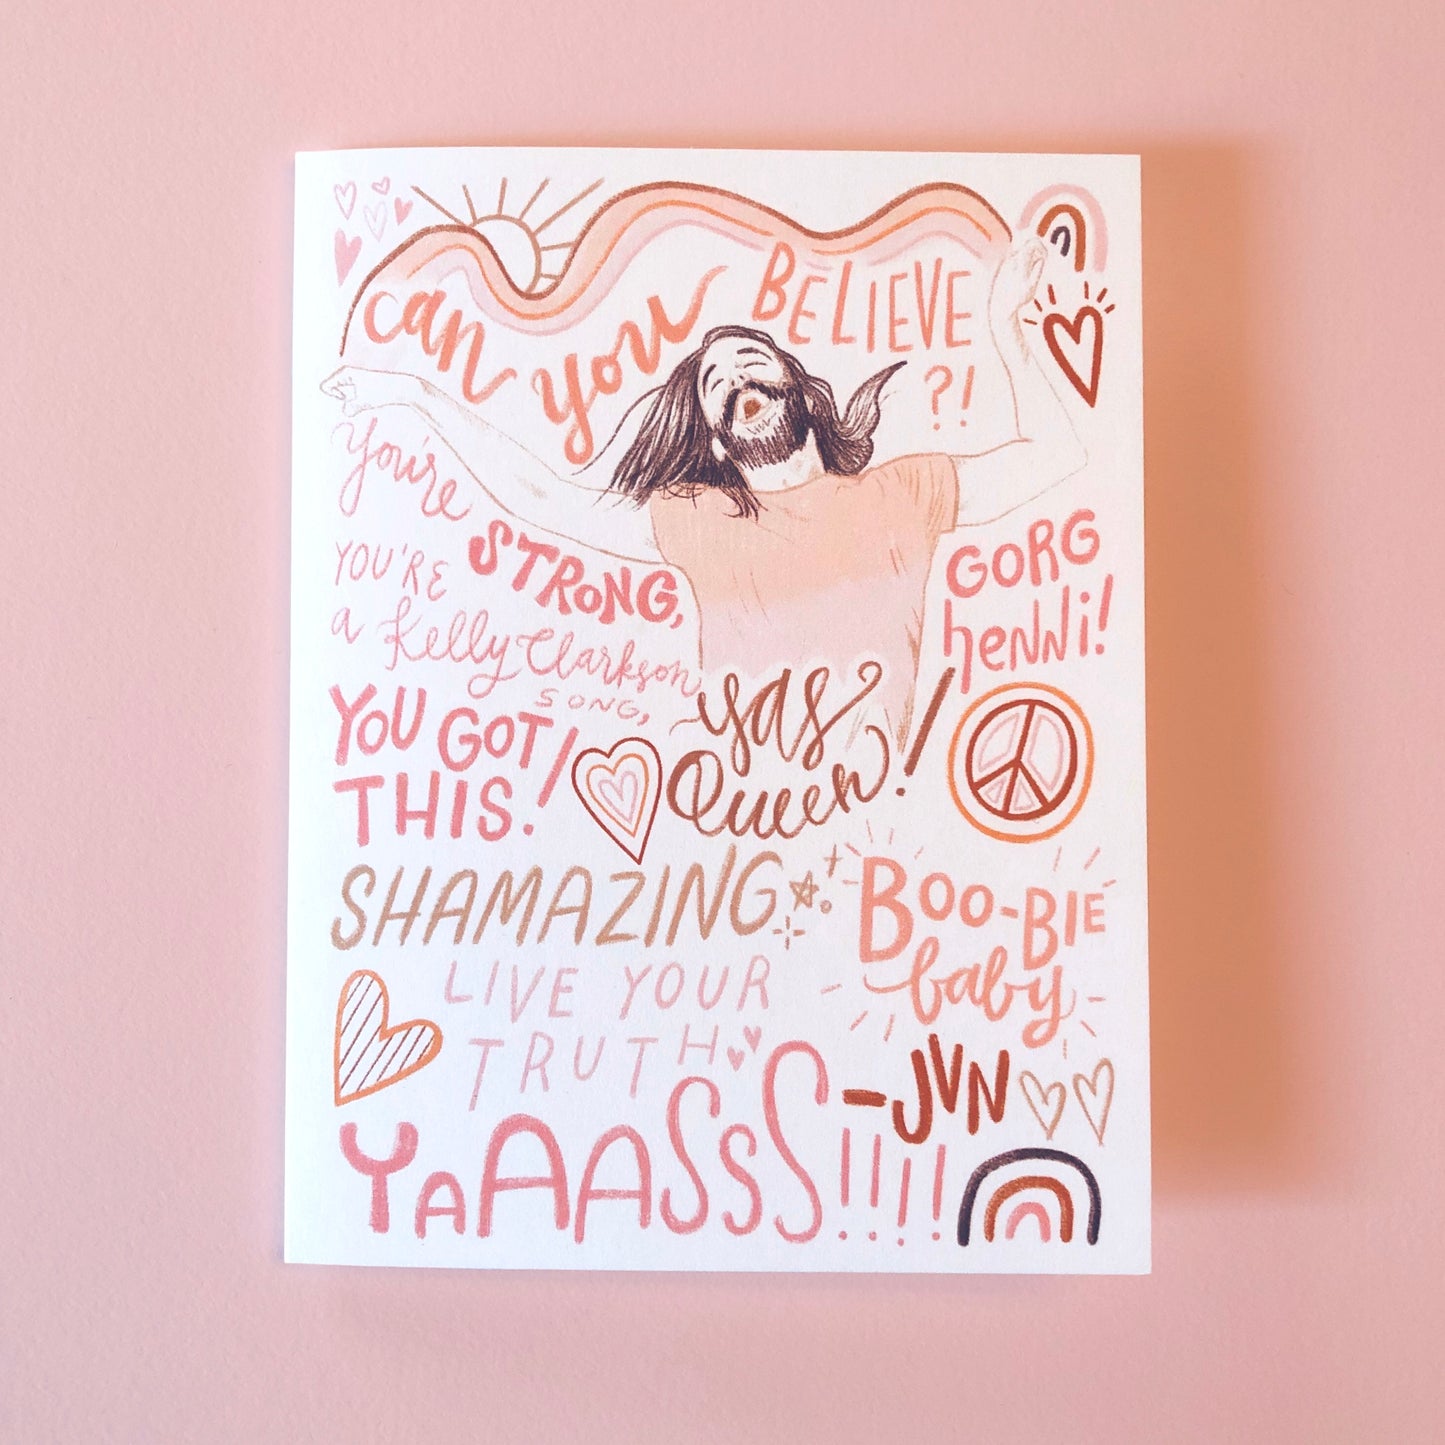 can you BELIEVE
?!
You're
STRONG,
YOU'RE
a Kelly Clarkson
SONG,
YOU GOT
THIS!
GORG
henni!
yas
Queen!
SHAMAZING
BOO-BIE
baby
LIVE YOUR
TRUTH
-JVN
YAAAASSSS!!!!